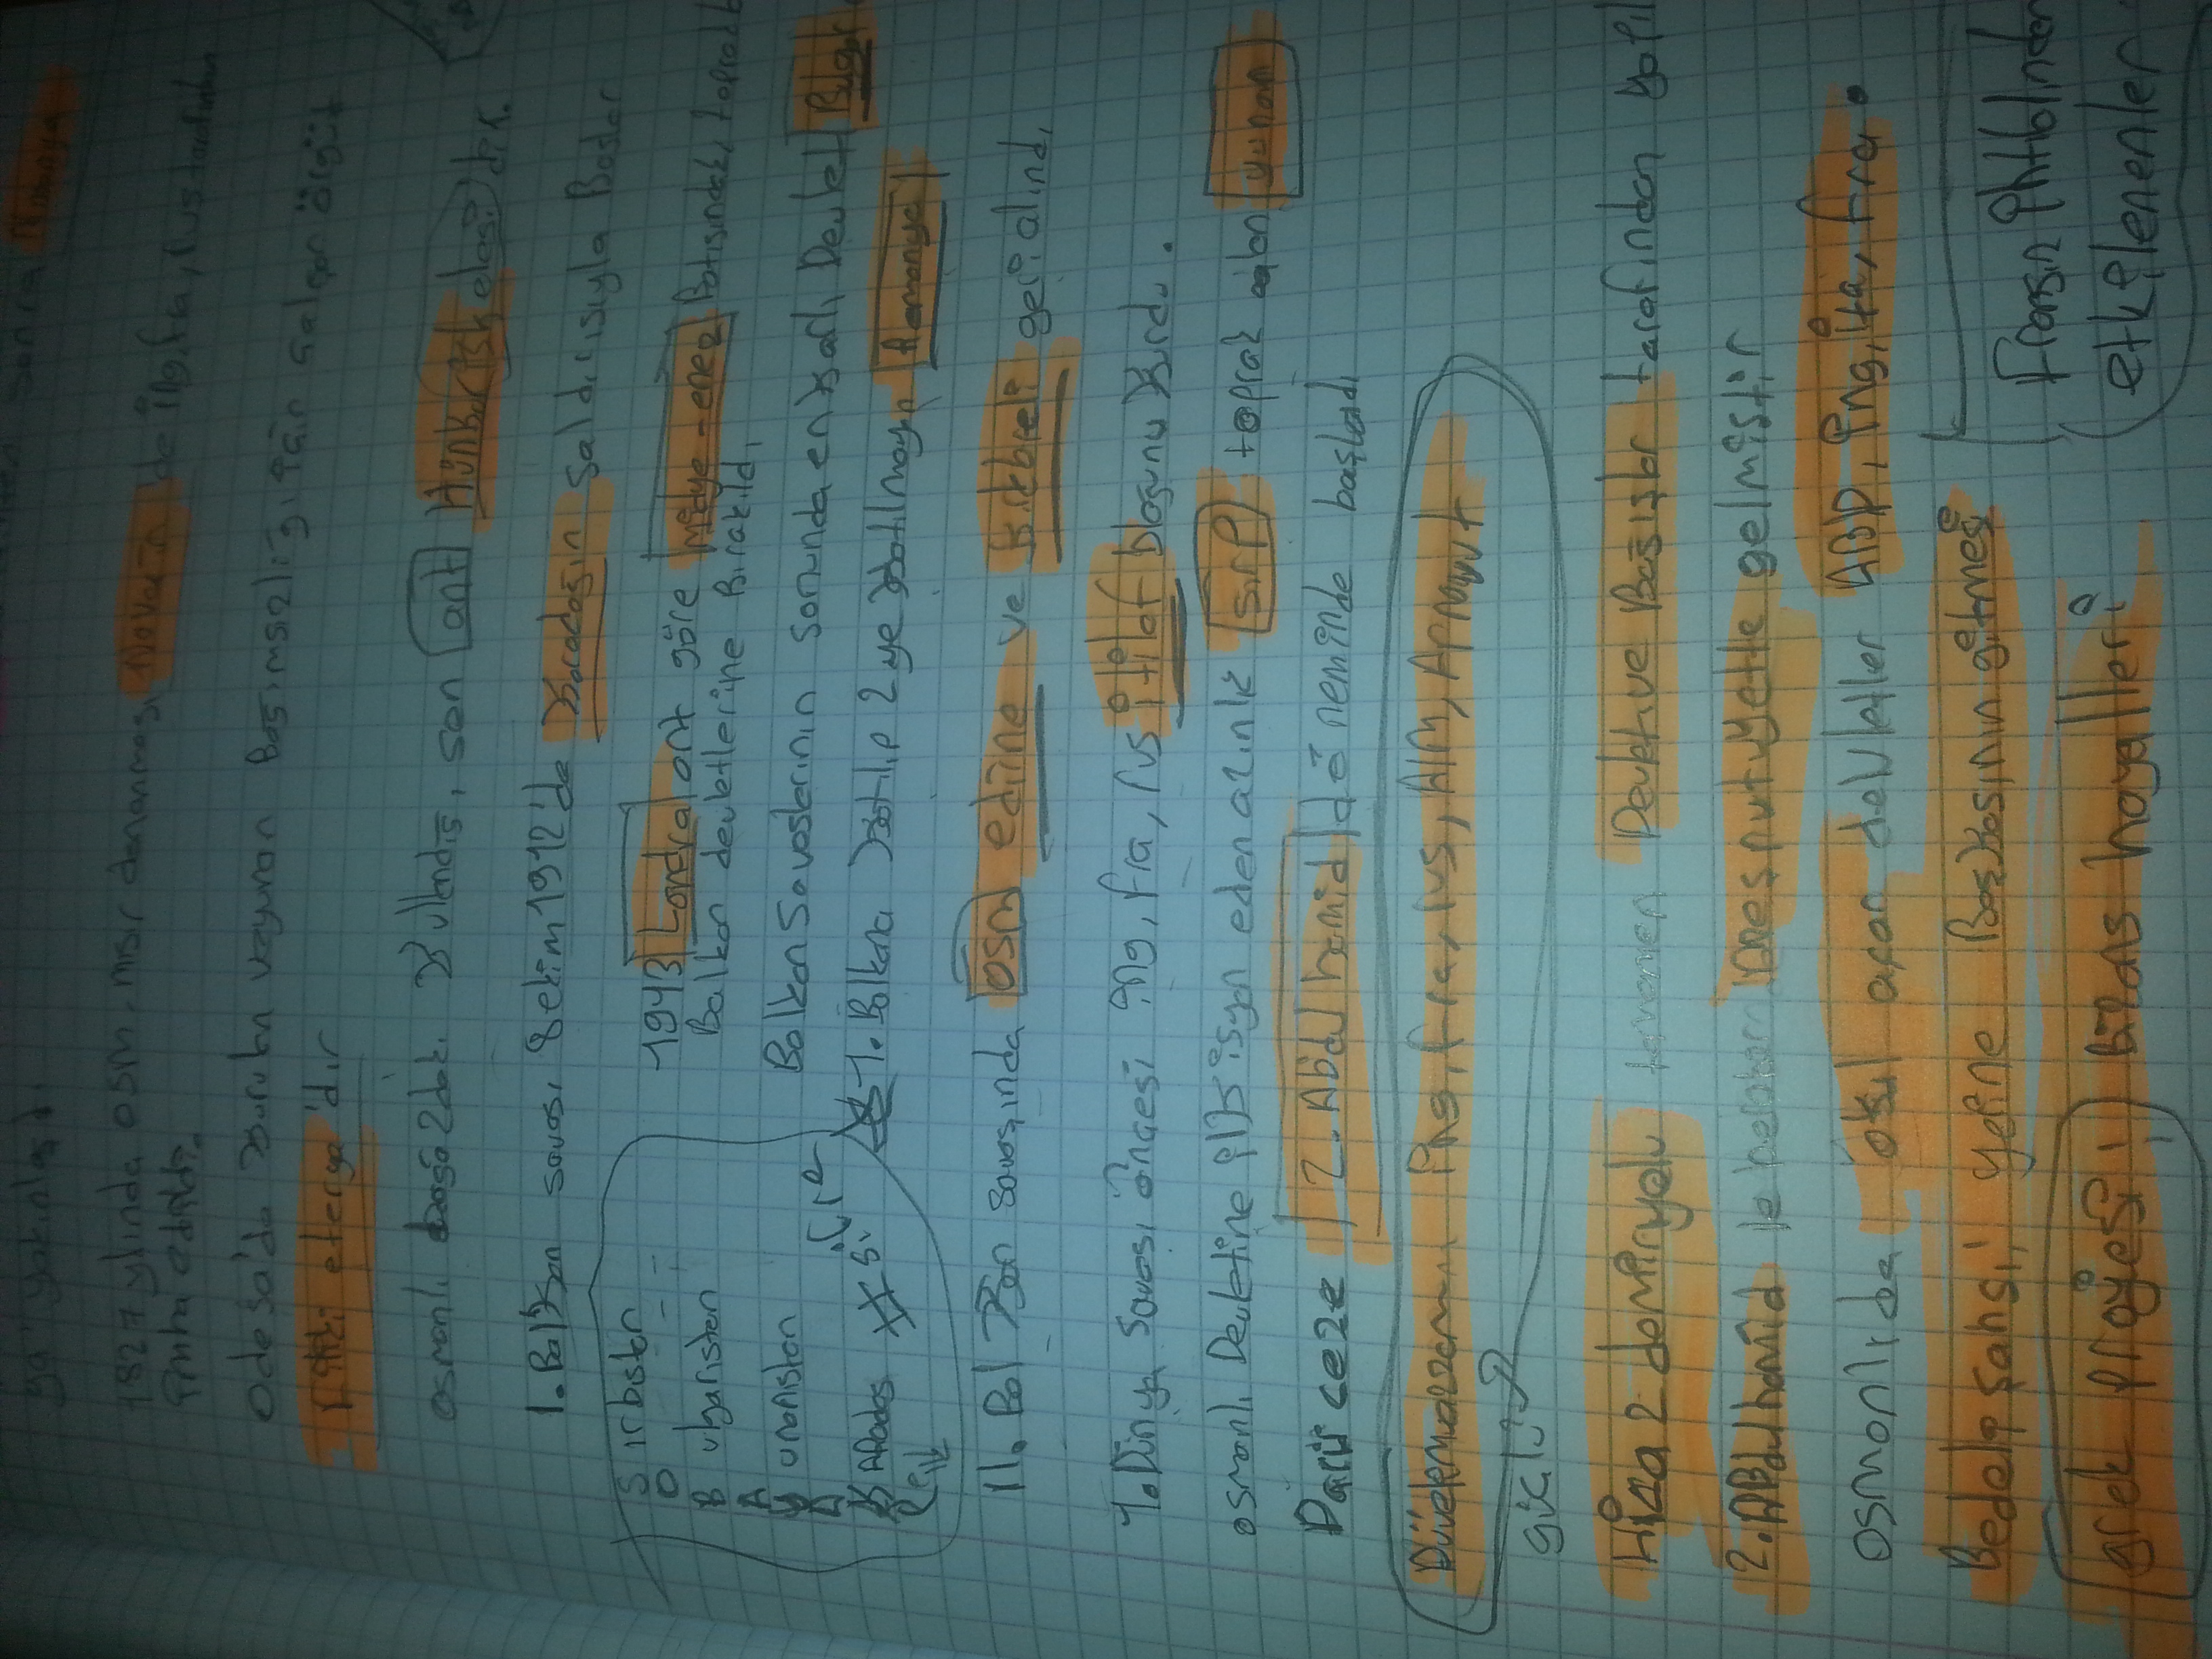 ya yakınlaştı
1827 yılında osm. mısır donanması Navarin de ing, fra, rus tarafından
imha edildi.
Odesa'da kurulan yunan bağımsızlığı için çalışan örgüt
Filiki eterya'dır
osmanlı boğazdaki kullandığı, son ant Hünkar isk elesi dir.
1. Balkan savaşı 8 ekim 1912'de Karadağın saldırısıyla Başlar
Sırbistan
Bulgaristan
Yunanistan
Karadağ
1913 Londra ant göre midye-enez Batısındaki toprakl
Balkan devletlerine Bırakıldı
Balkan Savaşlarının sonunda en karlı Devlet Bulgr
1. Balkana katılıp 2 ye katılmayan
II. Bal kan savaşında osm edirne ve kırklareli geri alındı
1. Dünya Savaşı öncesi ing, fra, rus itilaf bloğunu kurdu.
osmanlı Devletine ilk isyan eden azınlık sırp toprak alan yunan
Darü ceze 2. Abdulhamid döneminde başladı
Düvelimuazzama ing, fra, rus, Alm,
güçlü
Hicaz demiryolu tamamen Devlet ve Bağışlar tarafından yapıl
2. Abdulhamid le meşrutiyetle gelmiştir
osmanlıda okul açan devletler ABD, ing, ita, fra.
Bedelp şahsi, yerine Başkasının gitmesi
grek projesi, bizans hayalleri
Fransın ihtilalinden
etkilenenler